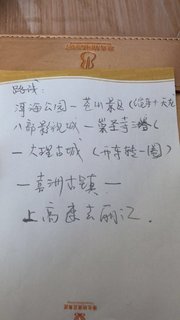 路线:
洱海公园—苍山景区(缆车+天龙
八部影视城—崇圣寺
—大理古城(开车转一圈)
—喜洲古镇—
上高速去丽江.